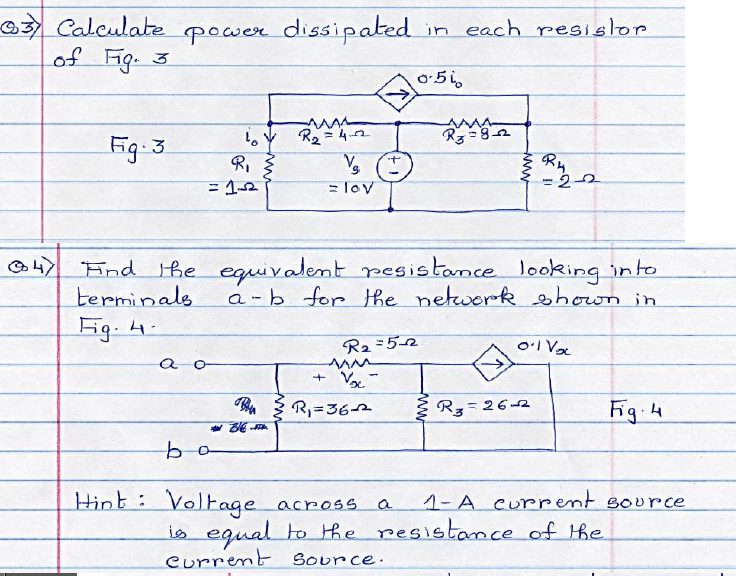 Q3) Calculate power dissipated in each resistor
of Fig. 3
0.5i₀
Fig. 3
i₀
R₂ = 4Ω
R₃ = 8Ω
R₁
= 1Ω
Vs
= 10V
+
-
R₄
= 2Ω
Q4) Find the equivalent resistance looking into
terminals a-b for the network shown in
Fig. 4.
R₂ = 5Ω
0.1Vx
a
+ Vx -
R₁ = 36Ω
R₃ = 26Ω
Fig. 4
b
Hint : Voltage across a 1-A current source
is equal to the resistance of the
current source.